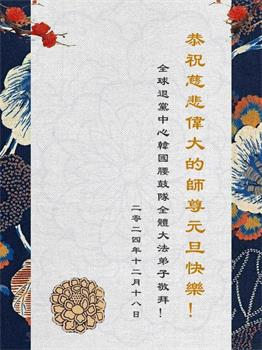 恭祝慈悲偉大的師尊元旦快樂！
全球退黨中心韓國腰鼓隊全體大法弟子敬拜！
二零二四年十二月十八日